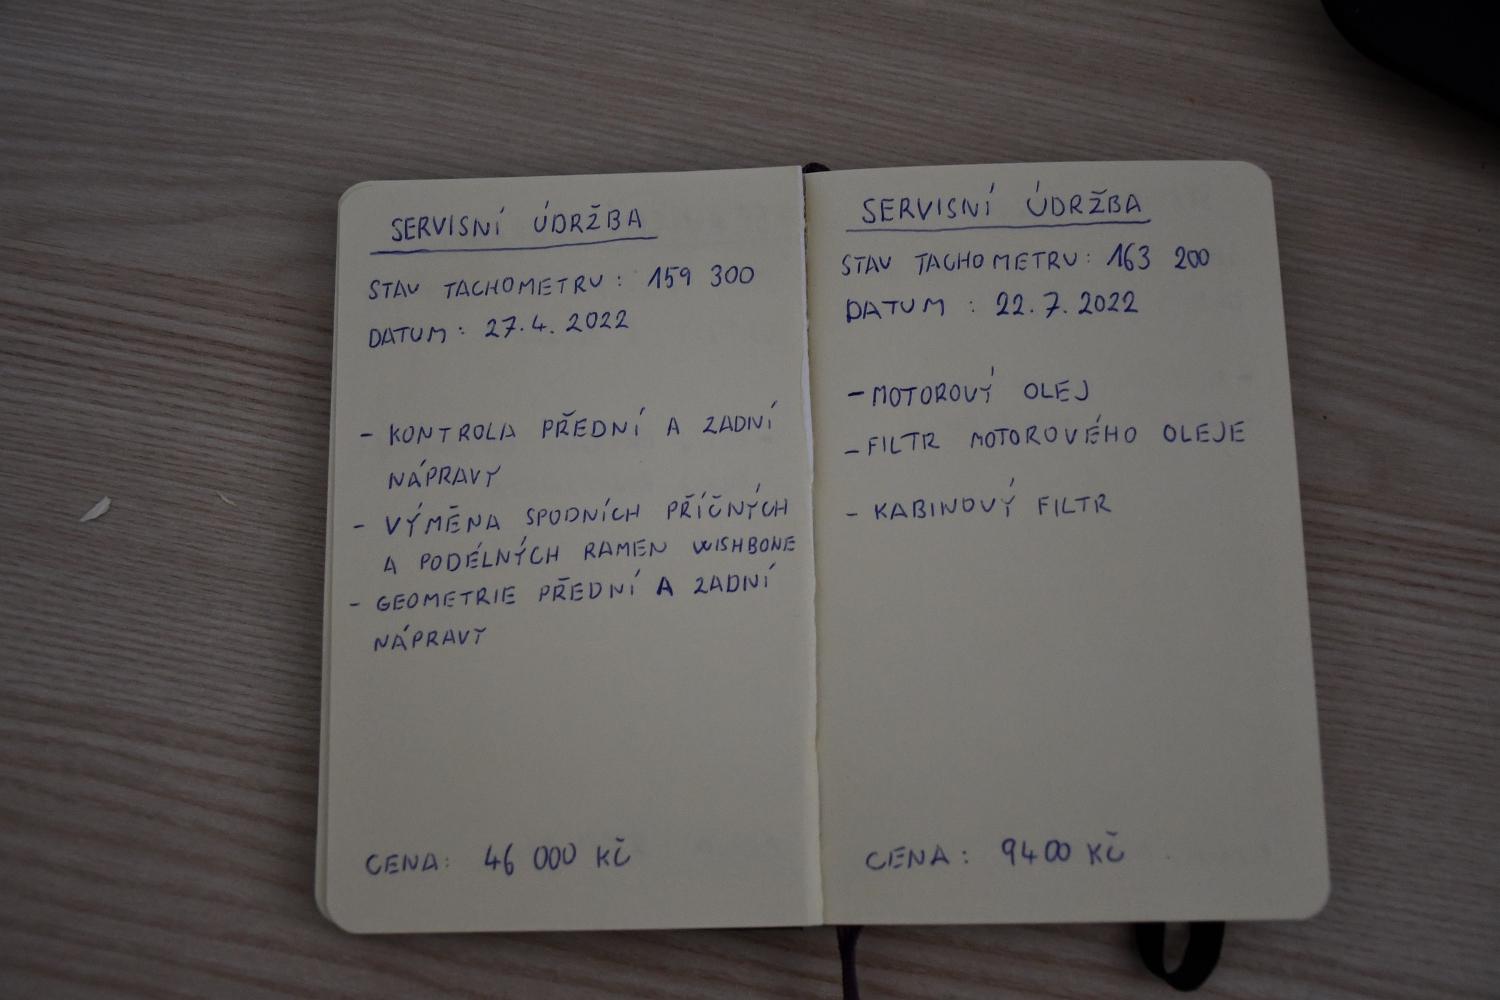 SERVISNÍ ÚDRŽBA
STAV TACHOMETRU: 159 300
DATUM: 27.4.2022
- KONTROLA PŘEDNÍ A ZADNÍ
NÁPRAVY
- VÝMĚNA SPODNÍCH PŘÍČNÝCH
A PODÉLNÝCH RAMEN WISHBONE
- GEOMETRIE PŘEDNÍ A ZADNÍ
NÁPRAVY
CENA: 46 000 KČ
SERVISNÍ ÚDRŽBA
STAV TACHOMETRU: 163 200
DATUM: 22.7.2022
- MOTOROVÝ OLEJ
- FILTR MOTOROVÉHO OLEJE
- KABINOVÝ FILTR
CENA: 9400 KČ